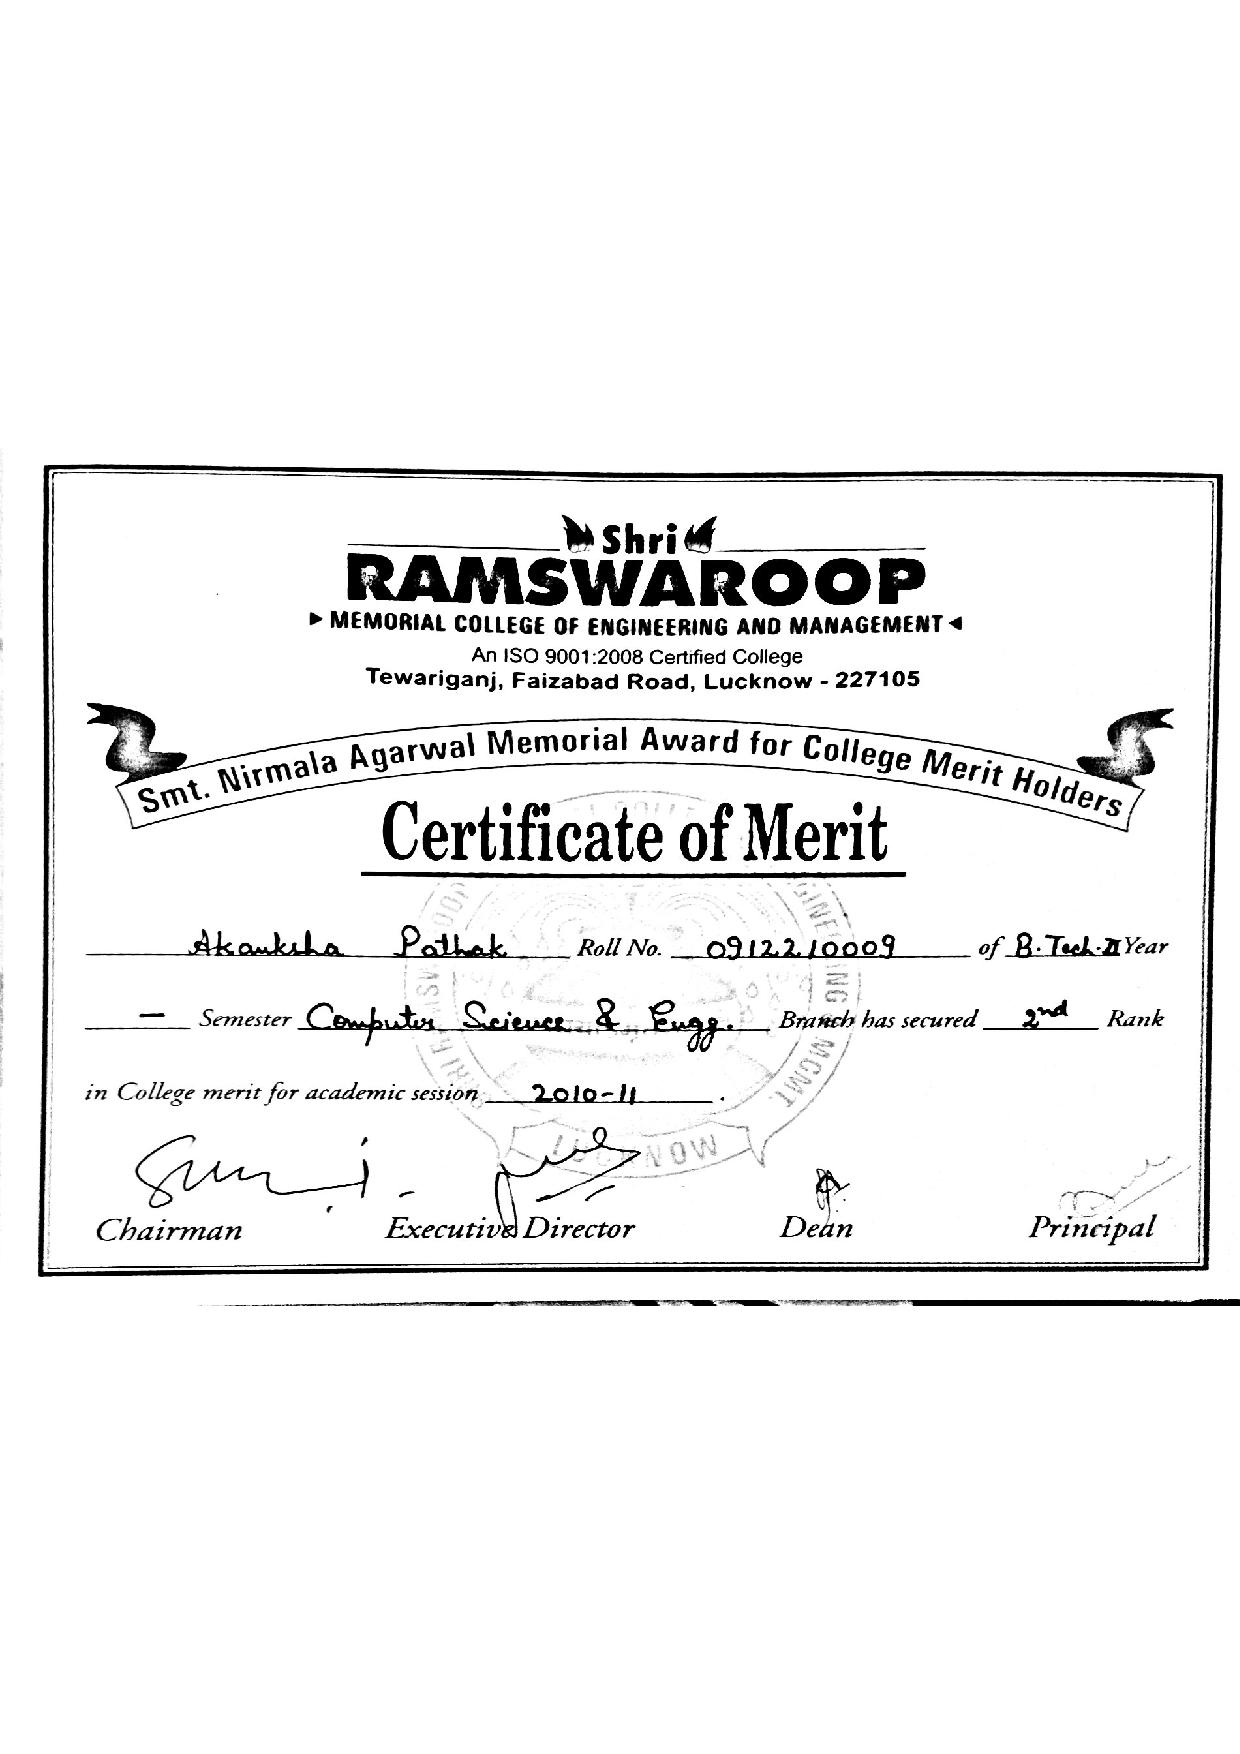 Shri
RAMSWAROOP
MEMORIAL COLLEGE OF ENGINEERING AND MANAGEMENT
An ISO 9001:2008 Certified College
Tewariganj, Faizabad Road, Lucknow - 227105
Smt. Nirmala Agarwal Memorial Award for College Merit Holders
Certificate of Merit
Akanksha Pathak Roll No. 0912210009 of B.Tech-II Year
— Semester Computer Science & Engg. Branch has secured 2nd Rank
in College merit for academic session 2010-11.
LUCKNOW
Chairman Executive Director Dean Principal